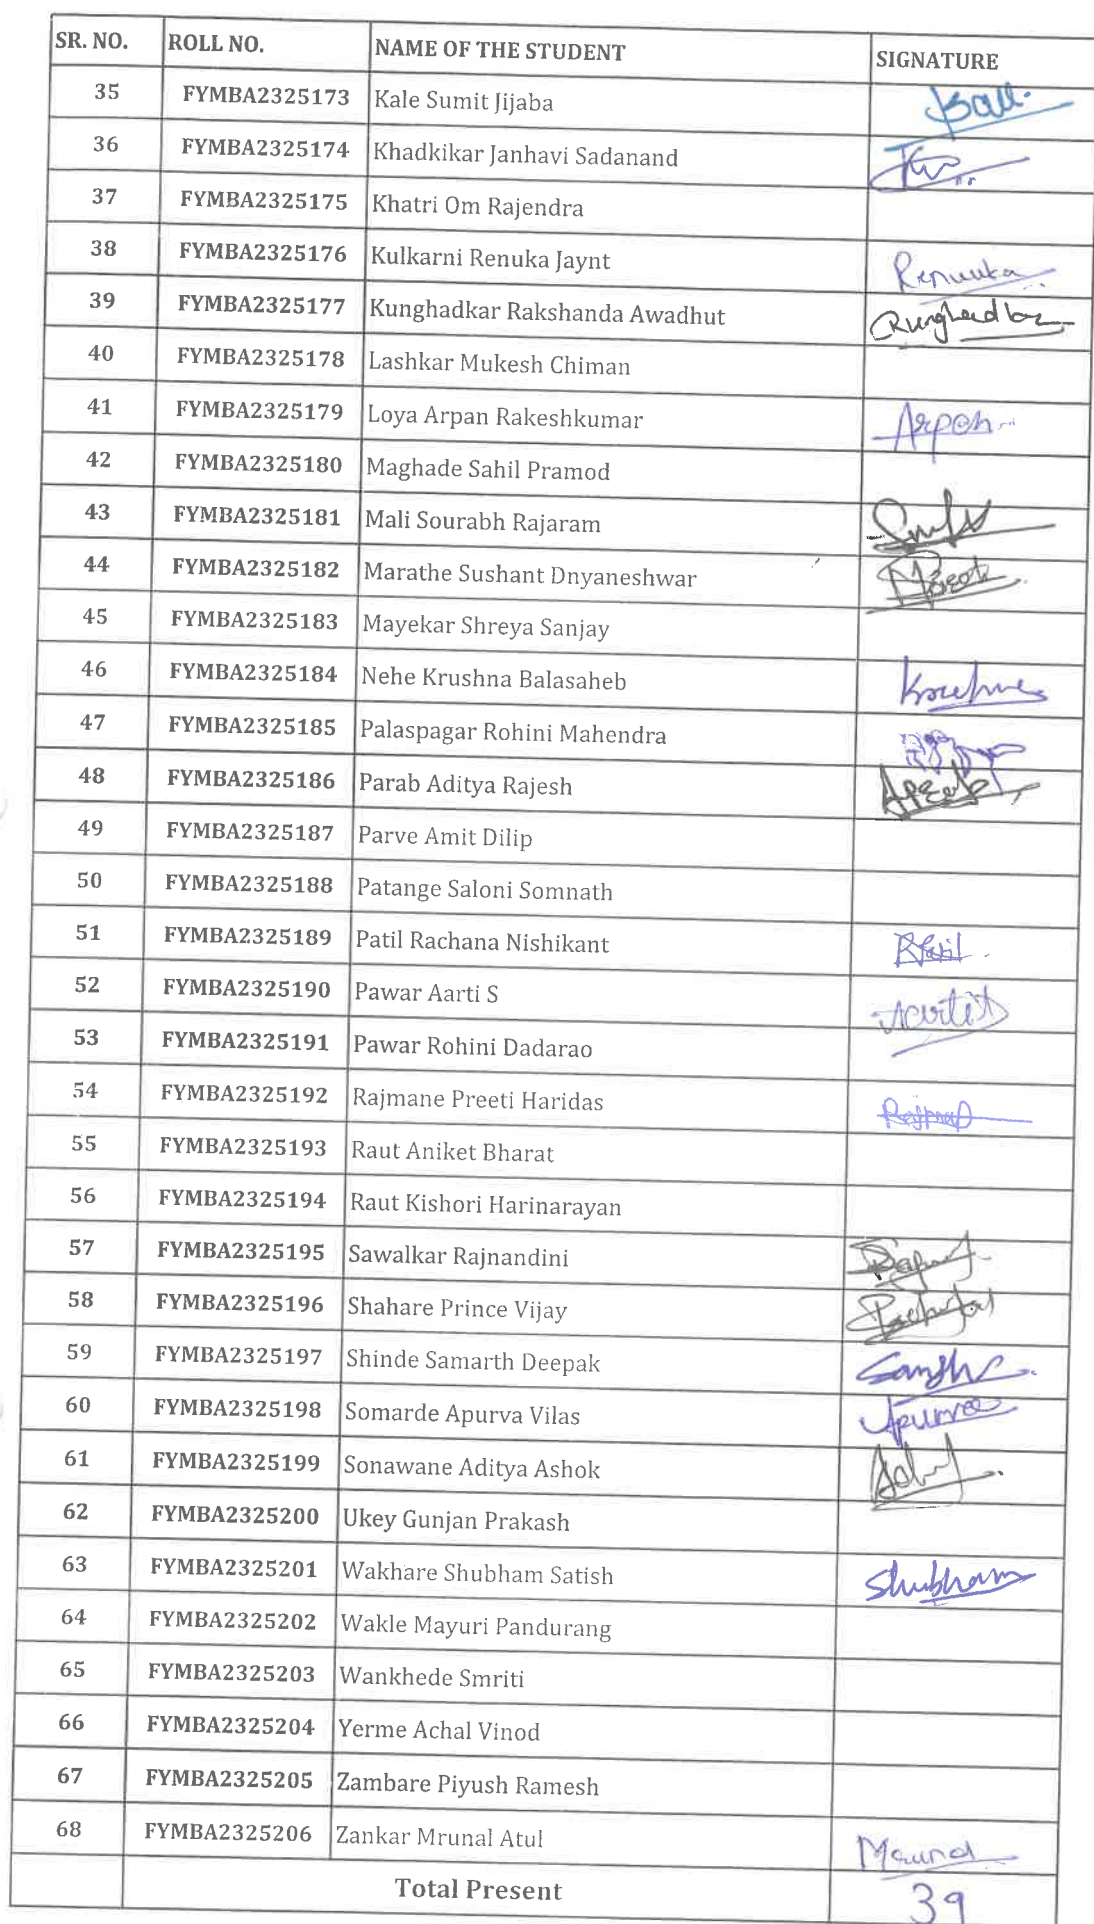 SR. NO. ROLL NO. NAME OF THE STUDENT SIGNATURE
35 FYMBA2325173 Kale Sumit Jijaba
36 FYMBA2325174 Khadkikar Janhavi Sadanand
37 FYMBA2325175 Khatri Om Rajendra
38 FYMBA2325176 Kulkarni Renuka Jaynt Renuka
39 FYMBA2325177 Kunghadkar Rakshanda Awadhut
40 FYMBA2325178 Lashkar Mukesh Chiman
41 FYMBA2325179 Loya Arpan Rakeshkumar Arpan
42 FYMBA2325180 Maghade Sahil Pramod
43 FYMBA2325181 Mali Sourabh Rajaram
44 FYMBA2325182 Marathe Sushant Dnyaneshwar
45 FYMBA2325183 Mayekar Shreya Sanjay
46 FYMBA2325184 Nehe Krushna Balasaheb
47 FYMBA2325185 Palaspagar Rohini Mahendra
48 FYMBA2325186 Parab Aditya Rajesh
49 FYMBA2325187 Parve Amit Dilip
50 FYMBA2325188 Patange Saloni Somnath
51 FYMBA2325189 Patil Rachana Nishikant RPatil
52 FYMBA2325190 Pawar Aarti S
53 FYMBA2325191 Pawar Rohini Dadarao
54 FYMBA2325192 Rajmane Preeti Haridas
55 FYMBA2325193 Raut Aniket Bharat
56 FYMBA2325194 Raut Kishori Harinarayan
57 FYMBA2325195 Sawalkar Rajnandini
58 FYMBA2325196 Shahare Prince Vijay
59 FYMBA2325197 Shinde Samarth Deepak
60 FYMBA2325198 Somarde Apurva Vilas Apurva
61 FYMBA2325199 Sonawane Aditya Ashok
62 FYMBA2325200 Ukey Gunjan Prakash
63 FYMBA2325201 Wakhare Shubham Satish Shubham
64 FYMBA2325202 Wakle Mayuri Pandurang
65 FYMBA2325203 Wankhede Smriti
66 FYMBA2325204 Yerme Achal Vinod
67 FYMBA2325205 Zambare Piyush Ramesh
68 FYMBA2325206 Zankar Mrunal Atul
Total Present 39